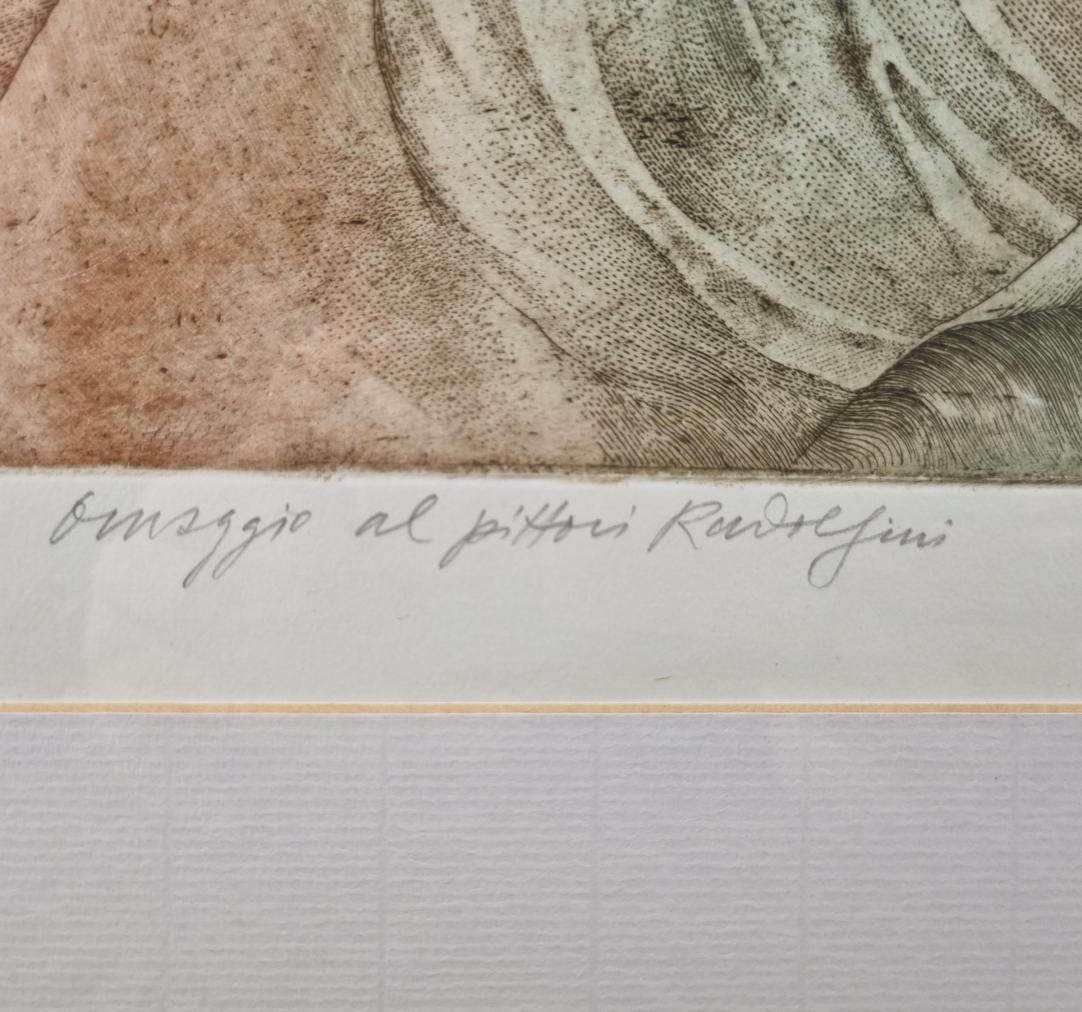 Omaggio al pittori Radolfini